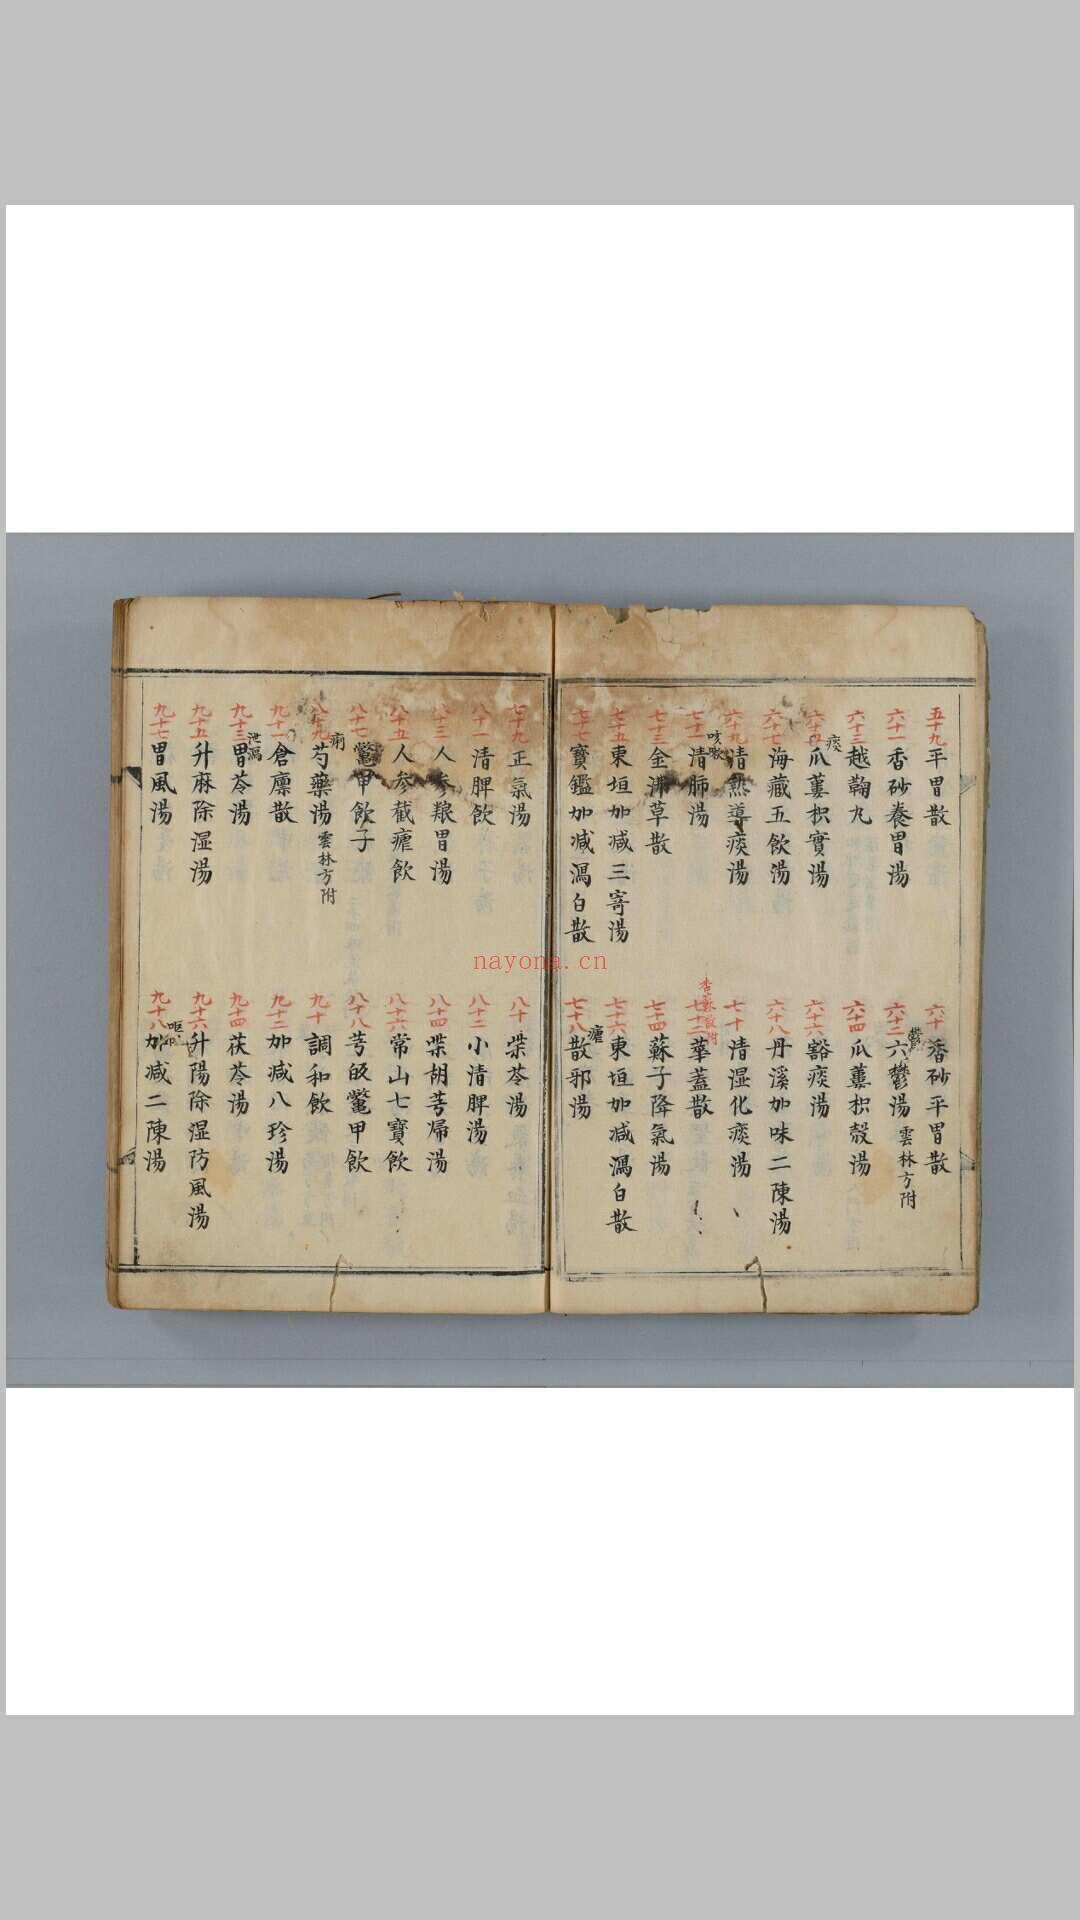 五十九平胃散
六十香砂平胃散
六十一香砂養胃湯
鬱
六十二六鬱湯雲林方附
六十三越鞠丸
六十四瓜蔞枳殼湯
痰
六十五瓜蔞枳實湯
六十六豁痰湯
六十七海藏五飲湯
六十八丹溪加味二陳湯
六十九清熱導痰湯
七十清湿化痰湯
咳嗽
七十一清肺湯
杏蘇散附
七十二華蓋散
七十三金沸草散
七十四蘇子降氣湯
七十五東垣加减三竒湯
七十六東垣加减瀉白散
七十七寳鑑加减瀉白散
瘧
七十八散邪湯
七十九正氣湯
八十柴苓湯
八十一清脾飲
八十二小清脾湯
八十三人參飬胃湯
八十四柴胡芎歸湯
八十五人參截瘧飲
八十六常山七寳飲
八十七鱉甲飲子
八十八芎皈鱉甲飲
痢
八十九芍藥湯雲林方附
九十調和飲
九十一倉廩散
九十二加减八珍湯
泄瀉
九十三胃苓湯
九十四茯苓湯
九十五升麻除湿湯
九十六升陽除湿防風湯
九十七胃風湯
九十八加减二陳湯
nayona.cn